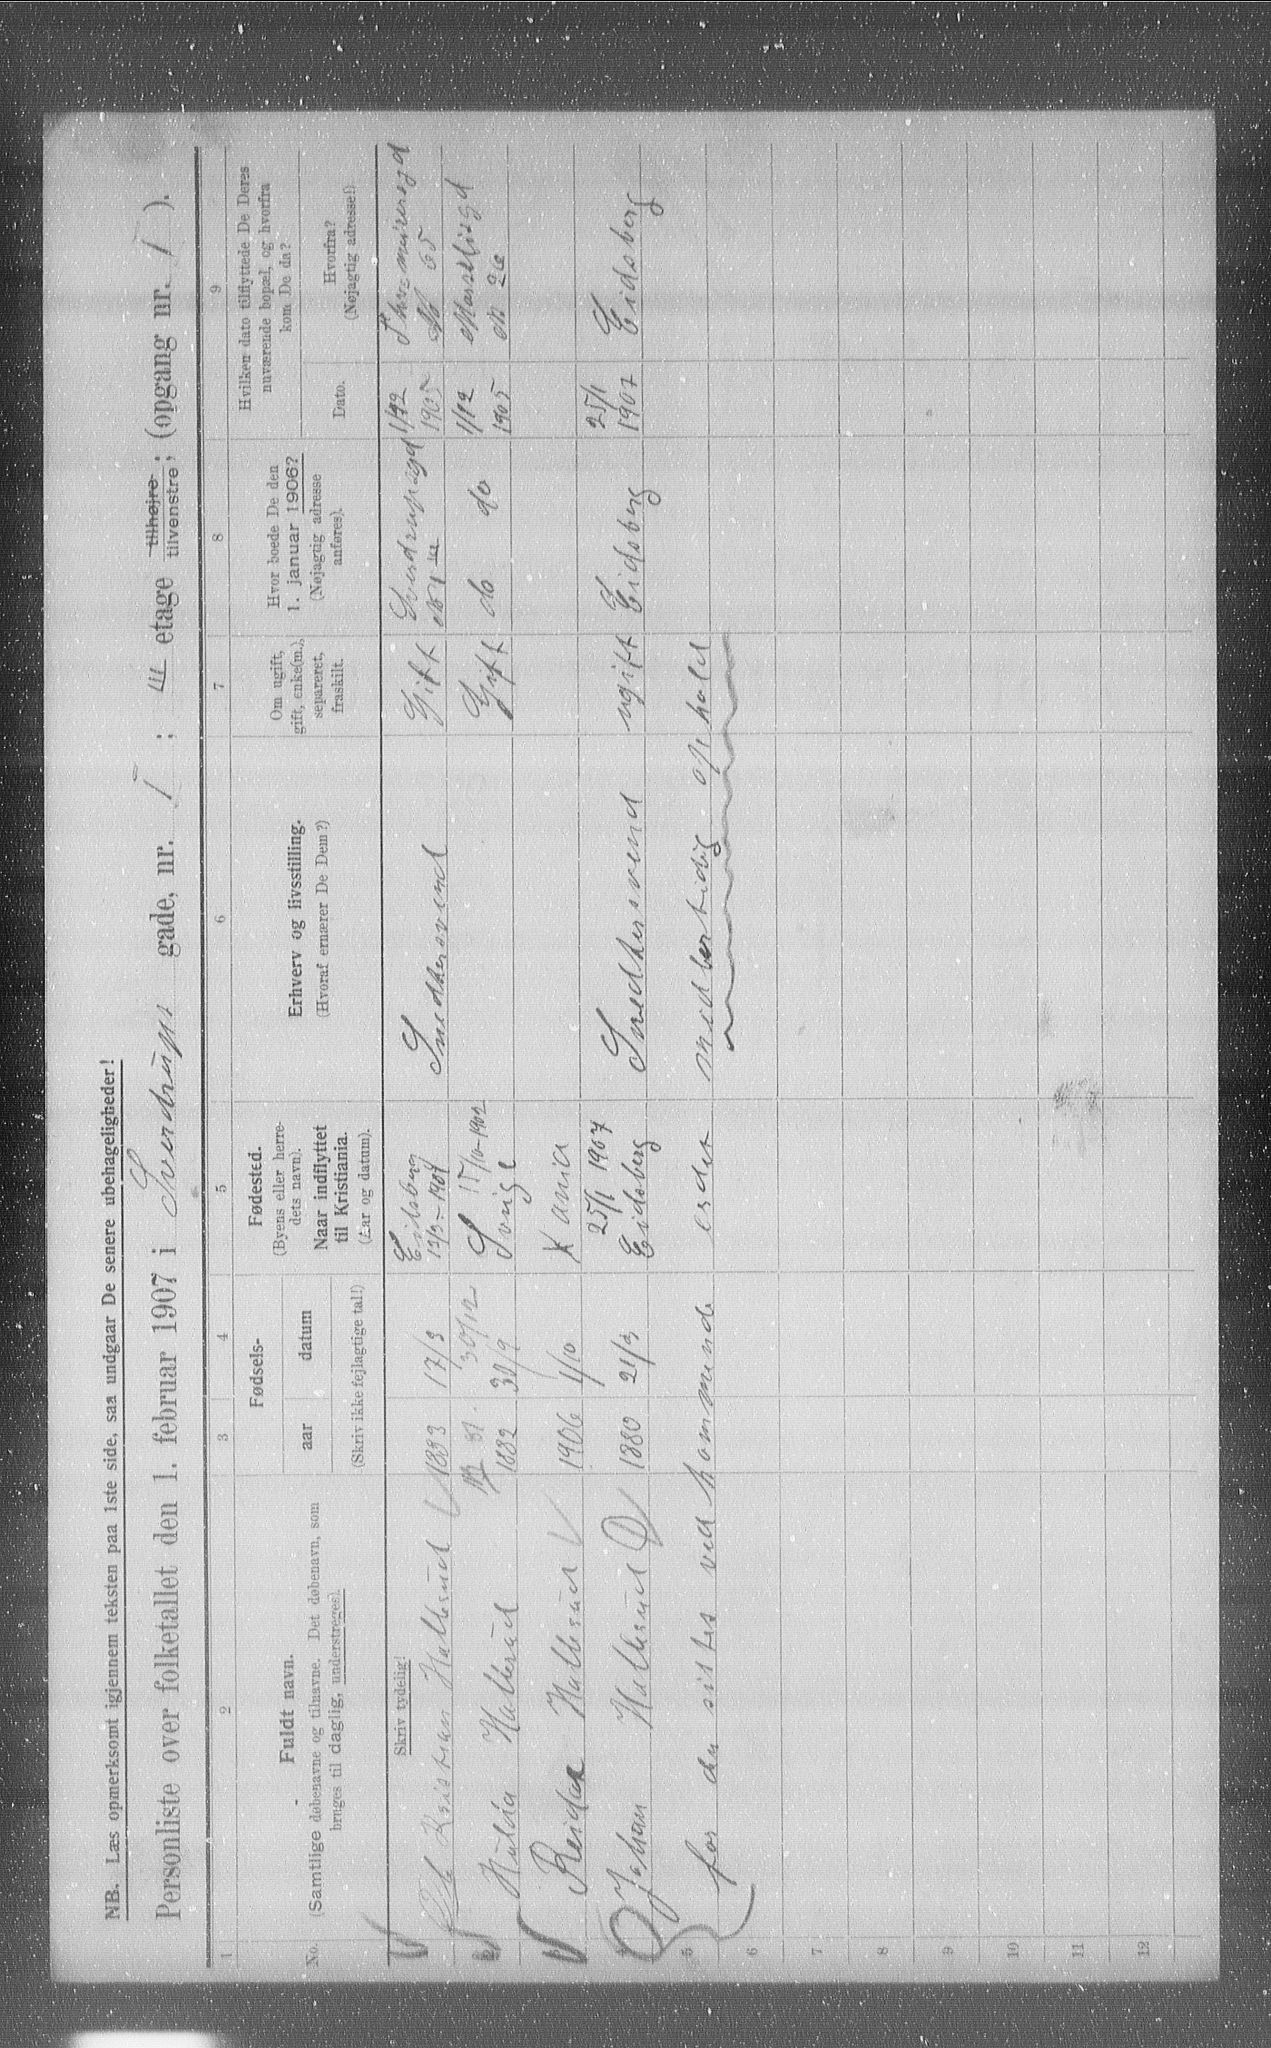 NB. Læs opmerksomt igjennem teksten paa 1ste side, saa undgaar De senere ubehageligheder!
Personliste over folketallet den 1. februar 1907 i Sverdrups gade, nr. 1 ; III etage tilhøjre tilvenstre ; (opgang nr. 1 ).
1 2 3 4 5 6 7 8 9
No.
Fuldt navn.
(Samtlige døbenavne og tilnavne. Det døbenavn, som
bruges til daglig, understreges).
Fødsels-
aar datum
(Skriv ikke fejlagtige tal!)
Fødested.
(Byens eller herre-
dets navn).
Naar indflyttet
til Kristiania.
(Aar og datum).
Erhverv og livsstilling.
(Hvoraf ernærer De Dem?)
Om ugift,
gift, enke(m.),
separeret,
fraskilt.
Hvor boede De den
1. januar 1906?
(Nøjagtig adresse
anføres).
Hvilken dato tilflyttede De Deres
nuværende bopæl, og hvorfra
kom De da?
Dato.
Hvorfra?
(Nøjagtig adresse!)
Skriv tydelig!
Kristian Halkerud 1883 17/3 Eidsberg Snedkersvend Gift Sverdrupsgd 1905
Hulda Halkerud 1882 30/9 Sverige 15/10-1902 Gift do do 1/12 1905 26
Reidar Halkerud 1906 1/10 Kania
Johan Halkerud 1880 21/3 25/1 1907 Eidsberg Snedkersvend ugift Eidsberg 25/1 1907 Eidsberg
5 for den sistes vedkommende erdet midlertidig ophold
6
7
8
9
10
11
12